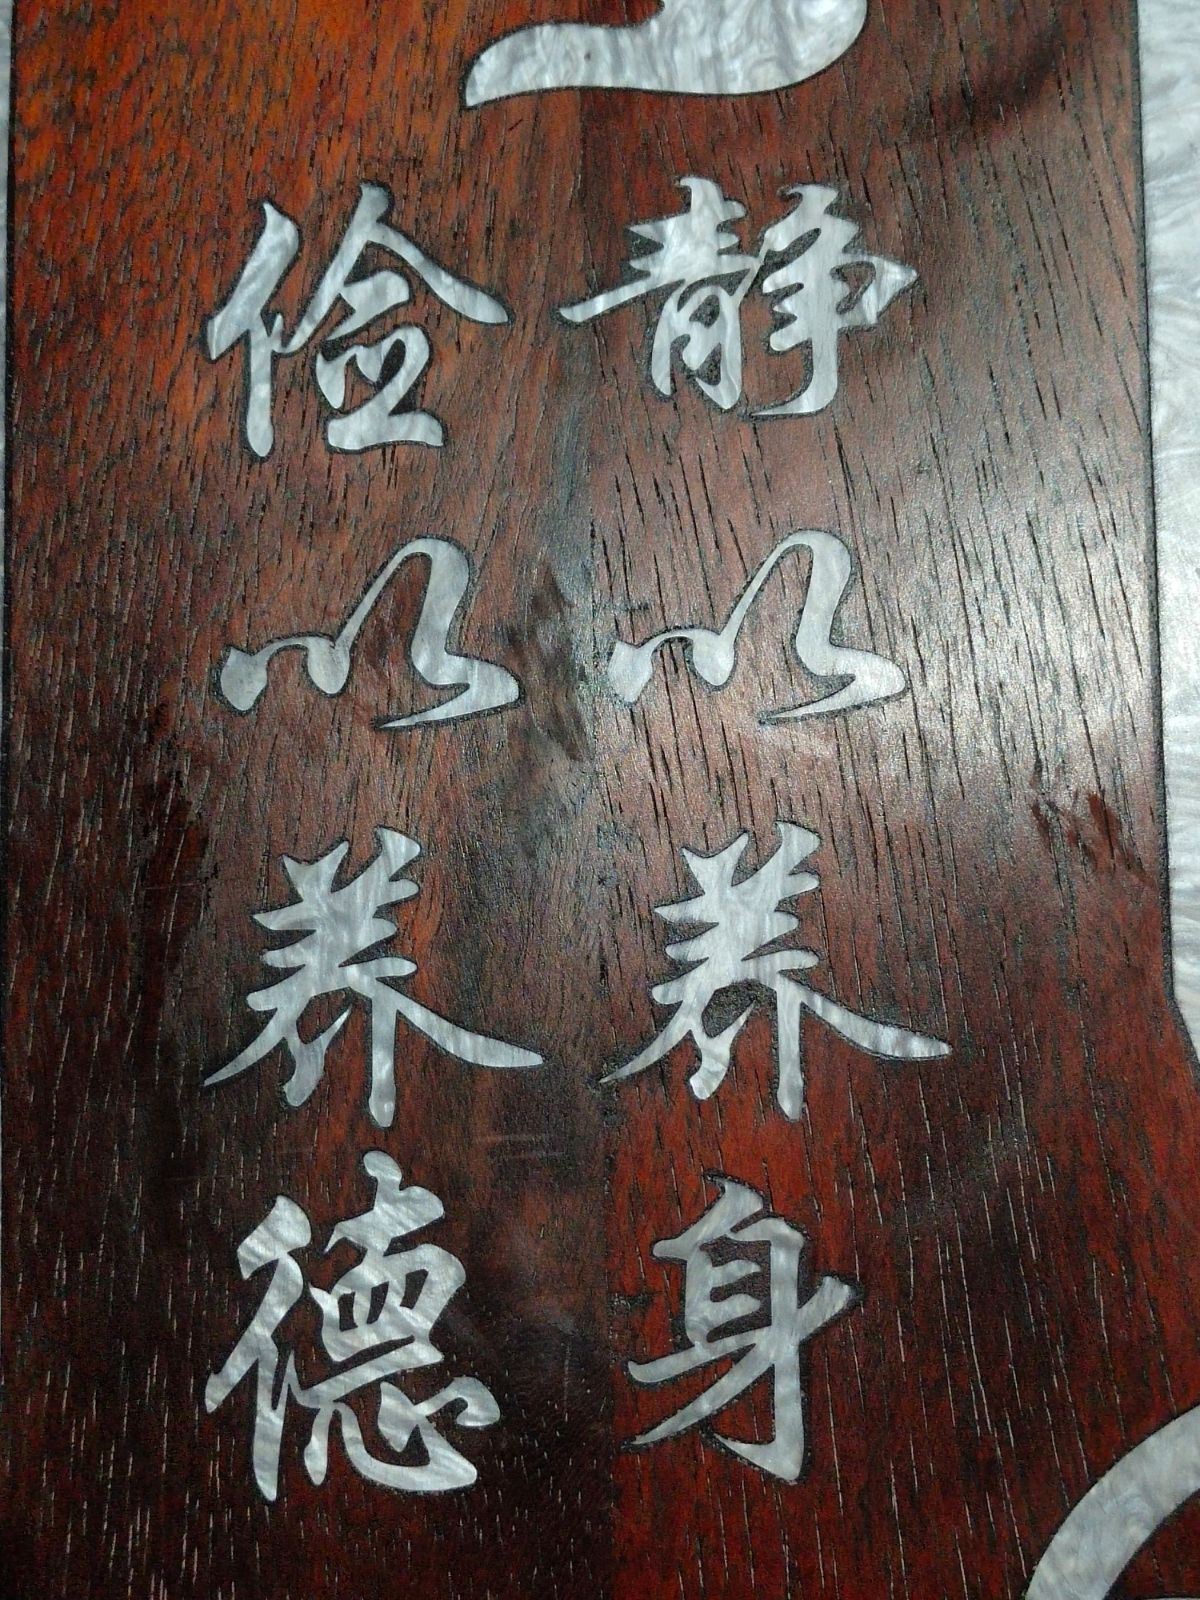 静以养身
俭以养德